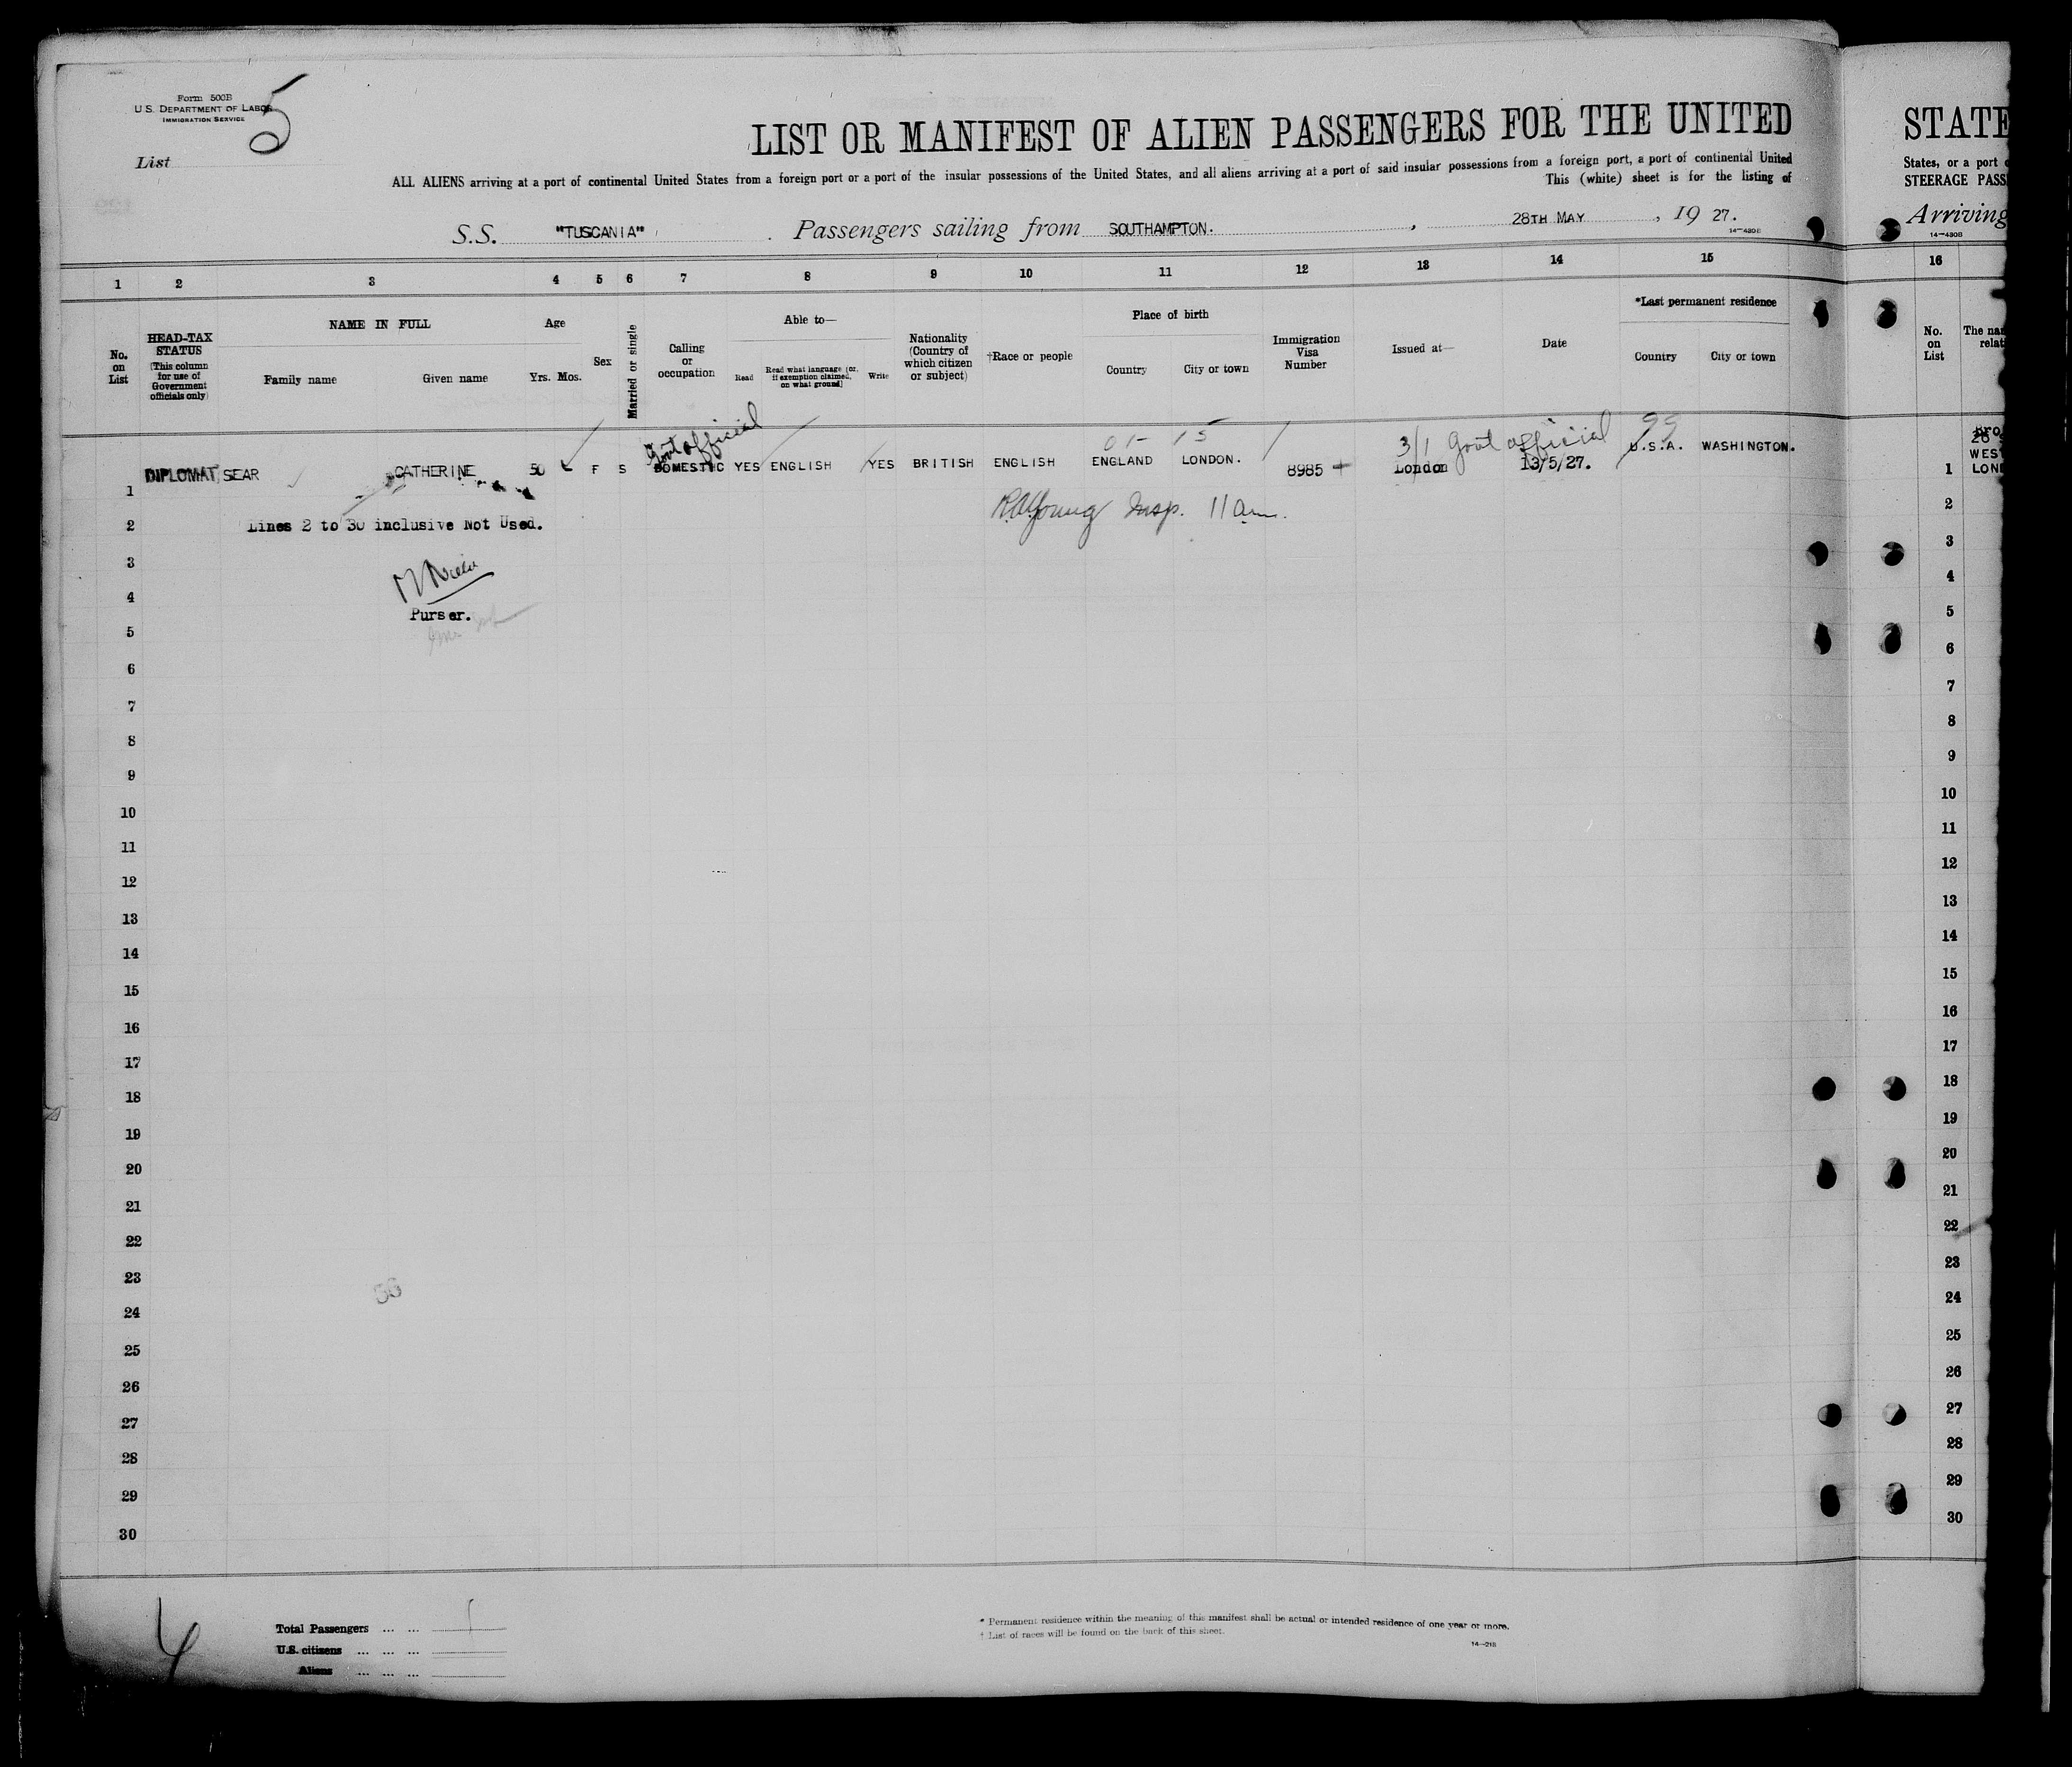 Form 500B
U.S. DEPARTMENT OF LABOR
IMMIGRATION SERVICE
5
List
LIST OR MANIFEST OF ALIEN PASSENGERS FOR THE UNITED
ALL ALIENS arriving at a port of continental United States from a foreign port or a port of the insular possessions of the United States, and all aliens arriving at a port of said insular possessions from a foreign port, a port of continental United
This (white) sheet is for the listing of
S.S. "TUSCANIA" . Passengers sailing from SOUTHAMPTON. , 28TH MAY , 19 27.
14-430B
1 2 3 4 5 6 7 8 9 10 11 12 13 14 15
No. on List
HEAD-TAX STATUS (This column for use of Government officials only)
NAME IN FULL
Family name Given name
Age
Yrs. Mos.
Sex
Married or single
Calling or occupation
Able to—
Read
Read what language (or, if exemption claimed, on what ground)
Write
Nationality (Country of which citizen or subject)
†Race or people
Place of birth
Country City or town
Immigration Visa Number
Issued at—
Date
*Last permanent residence
Country City or town
Govt official
01- 15
3/1 Govt official 99
DIPLOMAT SEAR CATHERINE 50 F S DOMESTIC YES ENGLISH YES BRITISH ENGLISH ENGLAND LONDON. 8985 London 13/5/27. U.S.A. WASHINGTON.
1
RAYoung Insp. 11 am.
2 Lines 2 to 30 inclusive Not Used.
3
4
Purser.
5
6
7
8
9
10
11
12
13
14
15
16
17
18
19
20
21
22
23
24
25
26
27
28
29
30
4
Total Passengers ... ... 1
U.S. citizens ... ... ...
Aliens ... ... ...
* Permanent residence within the meaning of this manifest shall be actual or intended residence of one year or more.
† List of races will be found on the back of this sheet.
14-218
STATE
States, or a port
STEERAGE PASS
Arriving
14-430B
16
No. on List
The
1 LON
2
3
4
5
6
7
8
9
10
11
12
13
14
15
16
17
18
19
20
21
22
23
24
25
26
27
28
29
30